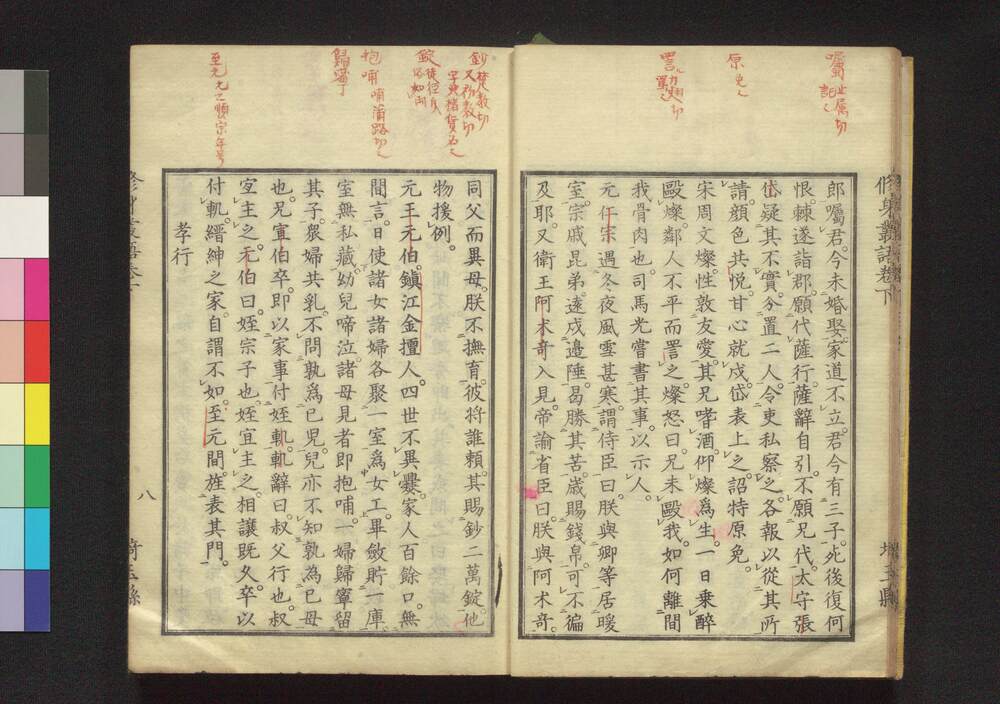 修身叢語卷下
埼玉縣
郎囑君。今未婚娶。家道不立。君今有三子。死後復何
恨。棘遂詣郡。願代薩行。薩辭自引。不願兄代。太守張
岱疑其不實。分置二人。令吏私察之。各報以從其所
請。顔色共悦。甘心就戍。岱表上之。詔特原免。
宋周文燦。性敦友愛。其兄嗜酒。仰燦爲生。一日乘醉
毆燦。鄰人不平而詈之。燦怒曰。兄未毆我。如何離間
我骨肉也。司馬光嘗書其事。以示人。
元仁宗遇冬夜風雪甚寒。謂侍臣曰。朕與卿等居暖
室。宗戚昆弟。遠戍邊陲。曷勝其苦。歲賜錢帛。可不徧
及耶。又衛王阿木哥入見。帝諭省臣曰。朕與阿木哥。
同父而異母。朕不撫育。彼將誰頼。其賜鈔二萬錠。他
物援例。
元王元伯。鎮江金擅人。四世不異爨。家人百餘口。無
間言。日使諸女諸婦各聚一室爲女工。畢斂貯一庫。
室無私藏。幼兒啼泣。諸母見者即抱哺。一婦歸寧留
其子。衆婦共乳。不問孰爲已兒。兒亦不知孰為已母
也。兄宣伯卒。即以家事付姪軌。軌辭曰。叔父行也。叔
宜主之。元伯曰。姪宗子也。姪宜主之。相讓既久。卒以
付軌。縉紳之家。自謂不如。至元間。旌表其門。
孝行
八
囑 之属切
託也
原 免也
詈 力翅切
罵也
鈔 楚教切
又初教切
錠 徒徑切
抱哺 哺蒲路切
歸寧
至元 元之順宗年号